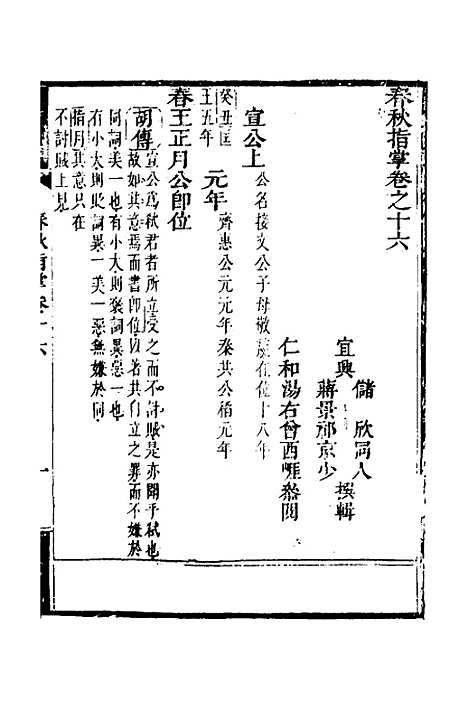 春秋指掌卷之十六
儲 欣同人
宜興 撰輯
蔣景祁京少
仁和湯右曾西崖叅閱
宣公上 公名接文公子母敬嬴在位十八年
癸丑匡
王五年 元年 齊惠公元元年秦共公稻元年
春王正月公即位
胡傳 宣公爲弒君者所立受之而不討賊是亦聞乎弒也
故如其意焉而書即位以著其自立之罪而不嫌於
同詞美一也有小大則褒詞異惡一也
有小大則貶詞異一美一惡無嫌於同
指月 其意只在
不討賊上見
春秋指掌 卷十六
一